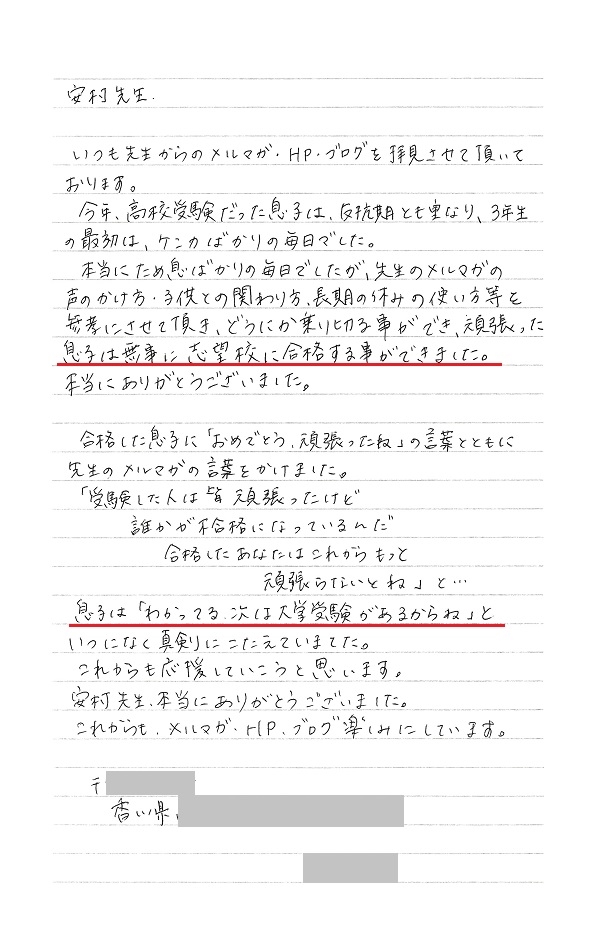 安村先生.
いつも先生からのメルマガ・HP・ブログを拝見させて頂いて
おります。
今年、高校受験だった息子は、反抗期とも重なり、3年生
の最初は、ケンカばかりの毎日でした。
本当にため息ばかりの毎日でしたが、先生のメルマガの
声のかけ方・子供との関わり方、長期の休みの使い方等を
参考にさせて頂き、どうにか乗り切る事ができ、頑張った
息子は無事に志望校に合格する事ができました。
本当にありがとうございました。
合格した息子に「おめでとう、頑張ったね」の言葉とともに
先生のメルマガの言葉をかけました。
「受験した人は皆頑張ったけど
誰かが不合格になっているんだ
合格したあなたはこれからもっと
頑張らないとね」と…
息子は「わかってる、次は大学受験があるからね」と
いつになく真剣にこたえていまてた。
これからも応援していこうと思います。
安村先生、本当にありがとうございました。
これからも、メルマガ・HP、ブログ楽しみにしています。
〒
香川県、